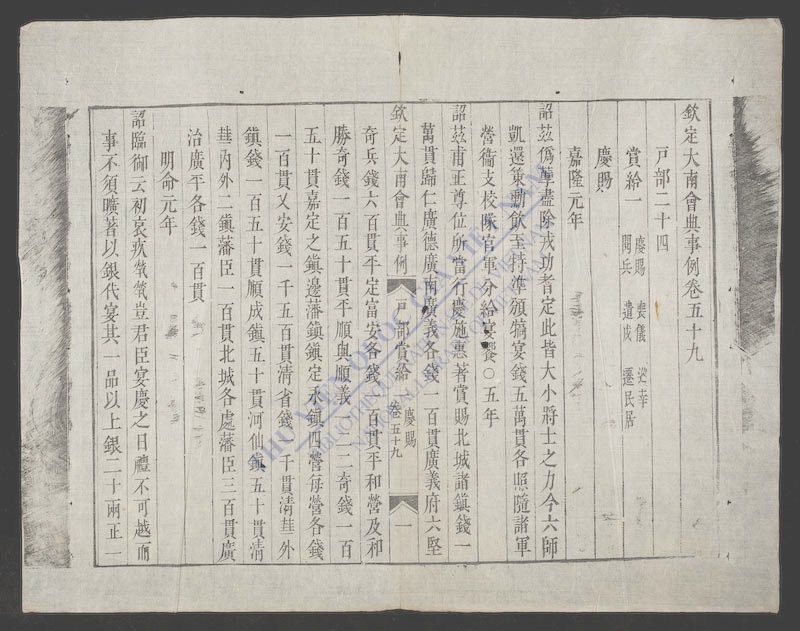 欽定大南會典事例卷五十九
戶部二十四
賞給一 慶賜 喪儀 巡幸
閱兵 遣戍 遷民居
慶賜
嘉隆元年
詔茲僞孽盡除戎功耆定此皆大小將士之力今六師
凱還策勳飲至特準頒犒宴錢五萬貫各照隨諸軍
營衞支校隊官軍分給宴饗〇五年
詔茲甫正尊位所當行慶施惠著賞賜北城諸鎭錢一
萬貫歸仁廣德廣南廣義各錢一百貫廣義府六堅
欽定大南會典事例 戶部賞給 慶賜 卷五十九 一
奇兵錢六百貫平定富安各錢一百貫平和營及和
勝奇錢一百五十貫平順與順義一二二奇錢一百
五十貫嘉定之鎭邊藩鎭鎭定永鎭四營每營各錢
一百貫乂安錢一千五百貫淸省錢一千貫淸葩外
鎭錢一百五十貫順成鎭五十貫河仙鎭五十貫淸
葩內外二鎭藩臣一百貫北城各處藩臣三百貫廣
治廣平各錢一百貫
明命元年
詔臨御云初哀疚煢煢豈君臣宴慶之日禮不可越而
事不須曠著以銀代宴其一品以上銀二十兩正一
THƯ VIỆN QUỐC GIA VIỆT NAM
BIBLIOTHÈQUE NATIONALE DU VIETNAM
NATIONAL LIBRARY OF VIETNAM